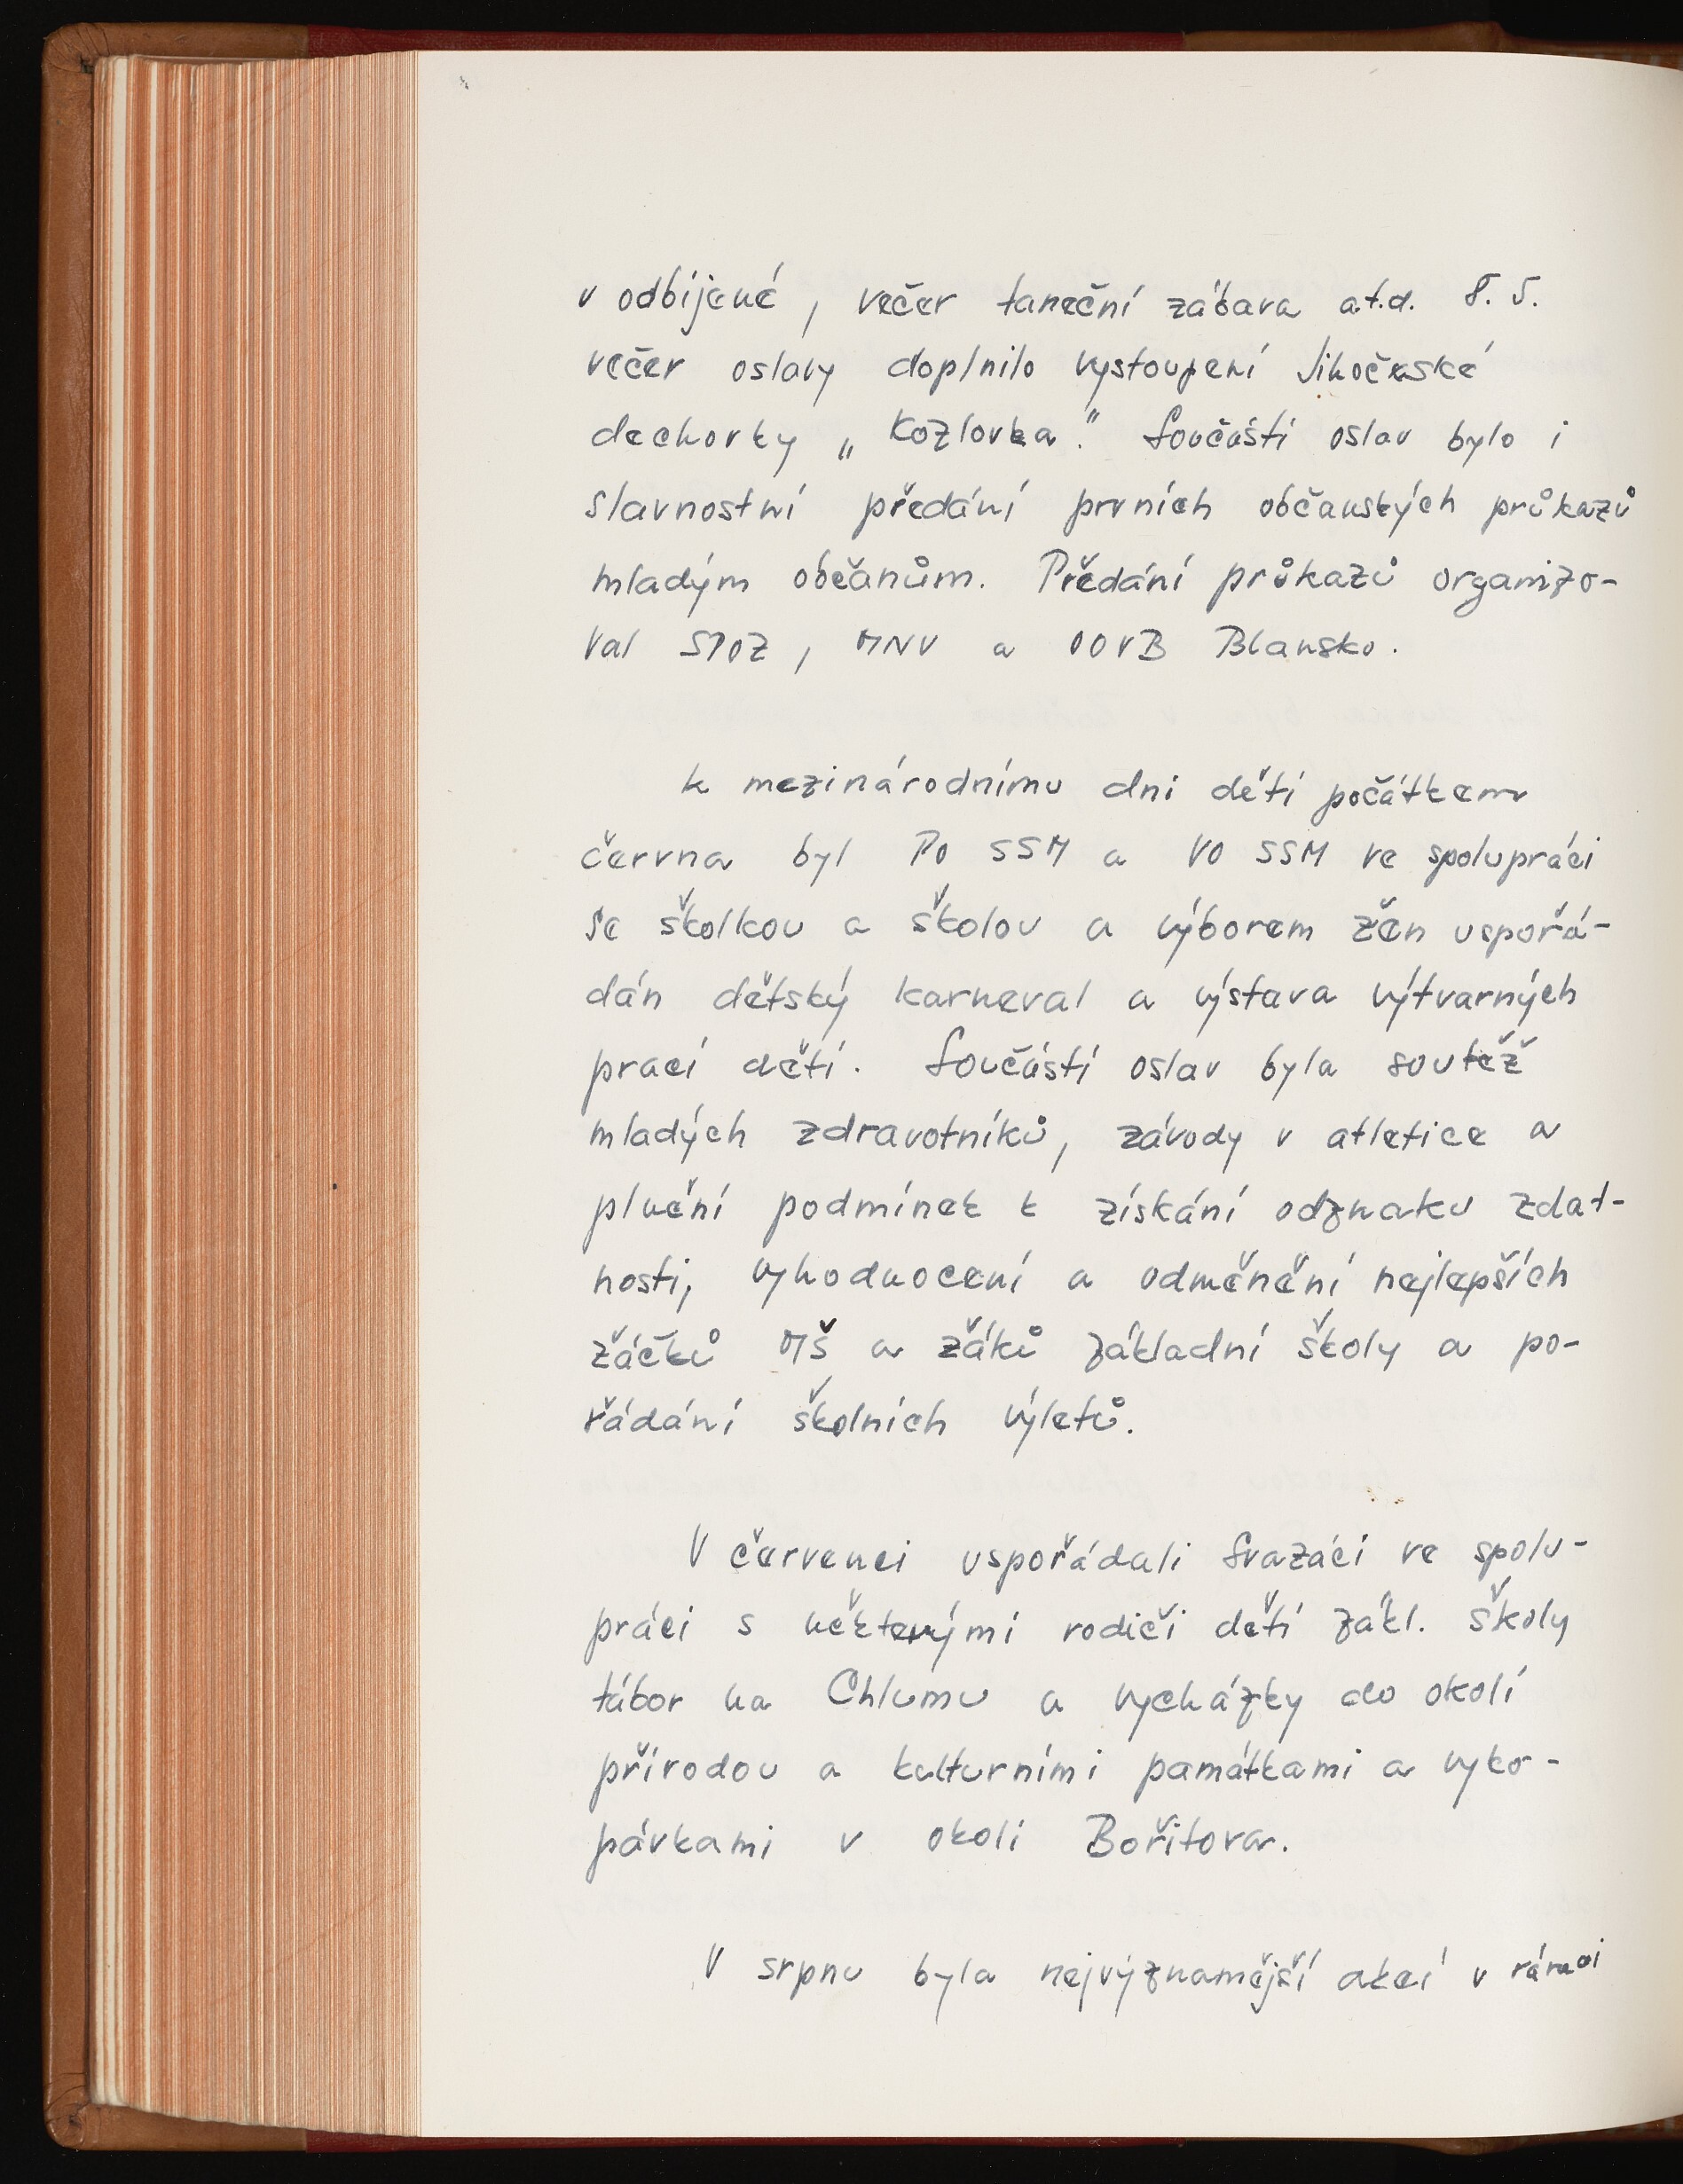 v odbíjené, večer taneční zábava at.d. 8. 5.
večer oslavy doplnilo vystoupení Jihočeské
dechovky „Kozlovka." Součástí oslav bylo i
slavnostní předání prvních občanských průkazů
mladým občanům. Předání průkazů organizo-
val SPOZ, MNV a OOVB Blansko.
K mezinárodnímu dni dětí počátkem
června byl PO SSM a VO SSM ve spolupráci
se školkou a školou a výborem žen uspořá-
dán dětský karneval a výstava výtvarných
prací dětí. Součástí oslav byla soutěž
mladých zdravotníků, závody v atletice a
plnění podmínek k získání odznaku zdat-
nosti, vyhodnocení a odměnění nejlepších
žáčků MŠ a žáků základní školy a po-
řádání školních výletů.
V červenci uspořádali svazáci ve spolu-
práci s některými rodiči dětí zákl. školy
tábor na Chlumu a vycházky do okolí
přírodou a kulturními památkami a vyko-
pávkami v okolí Bořitova.
V srpnu byla nejvýznamější akcí v rámci